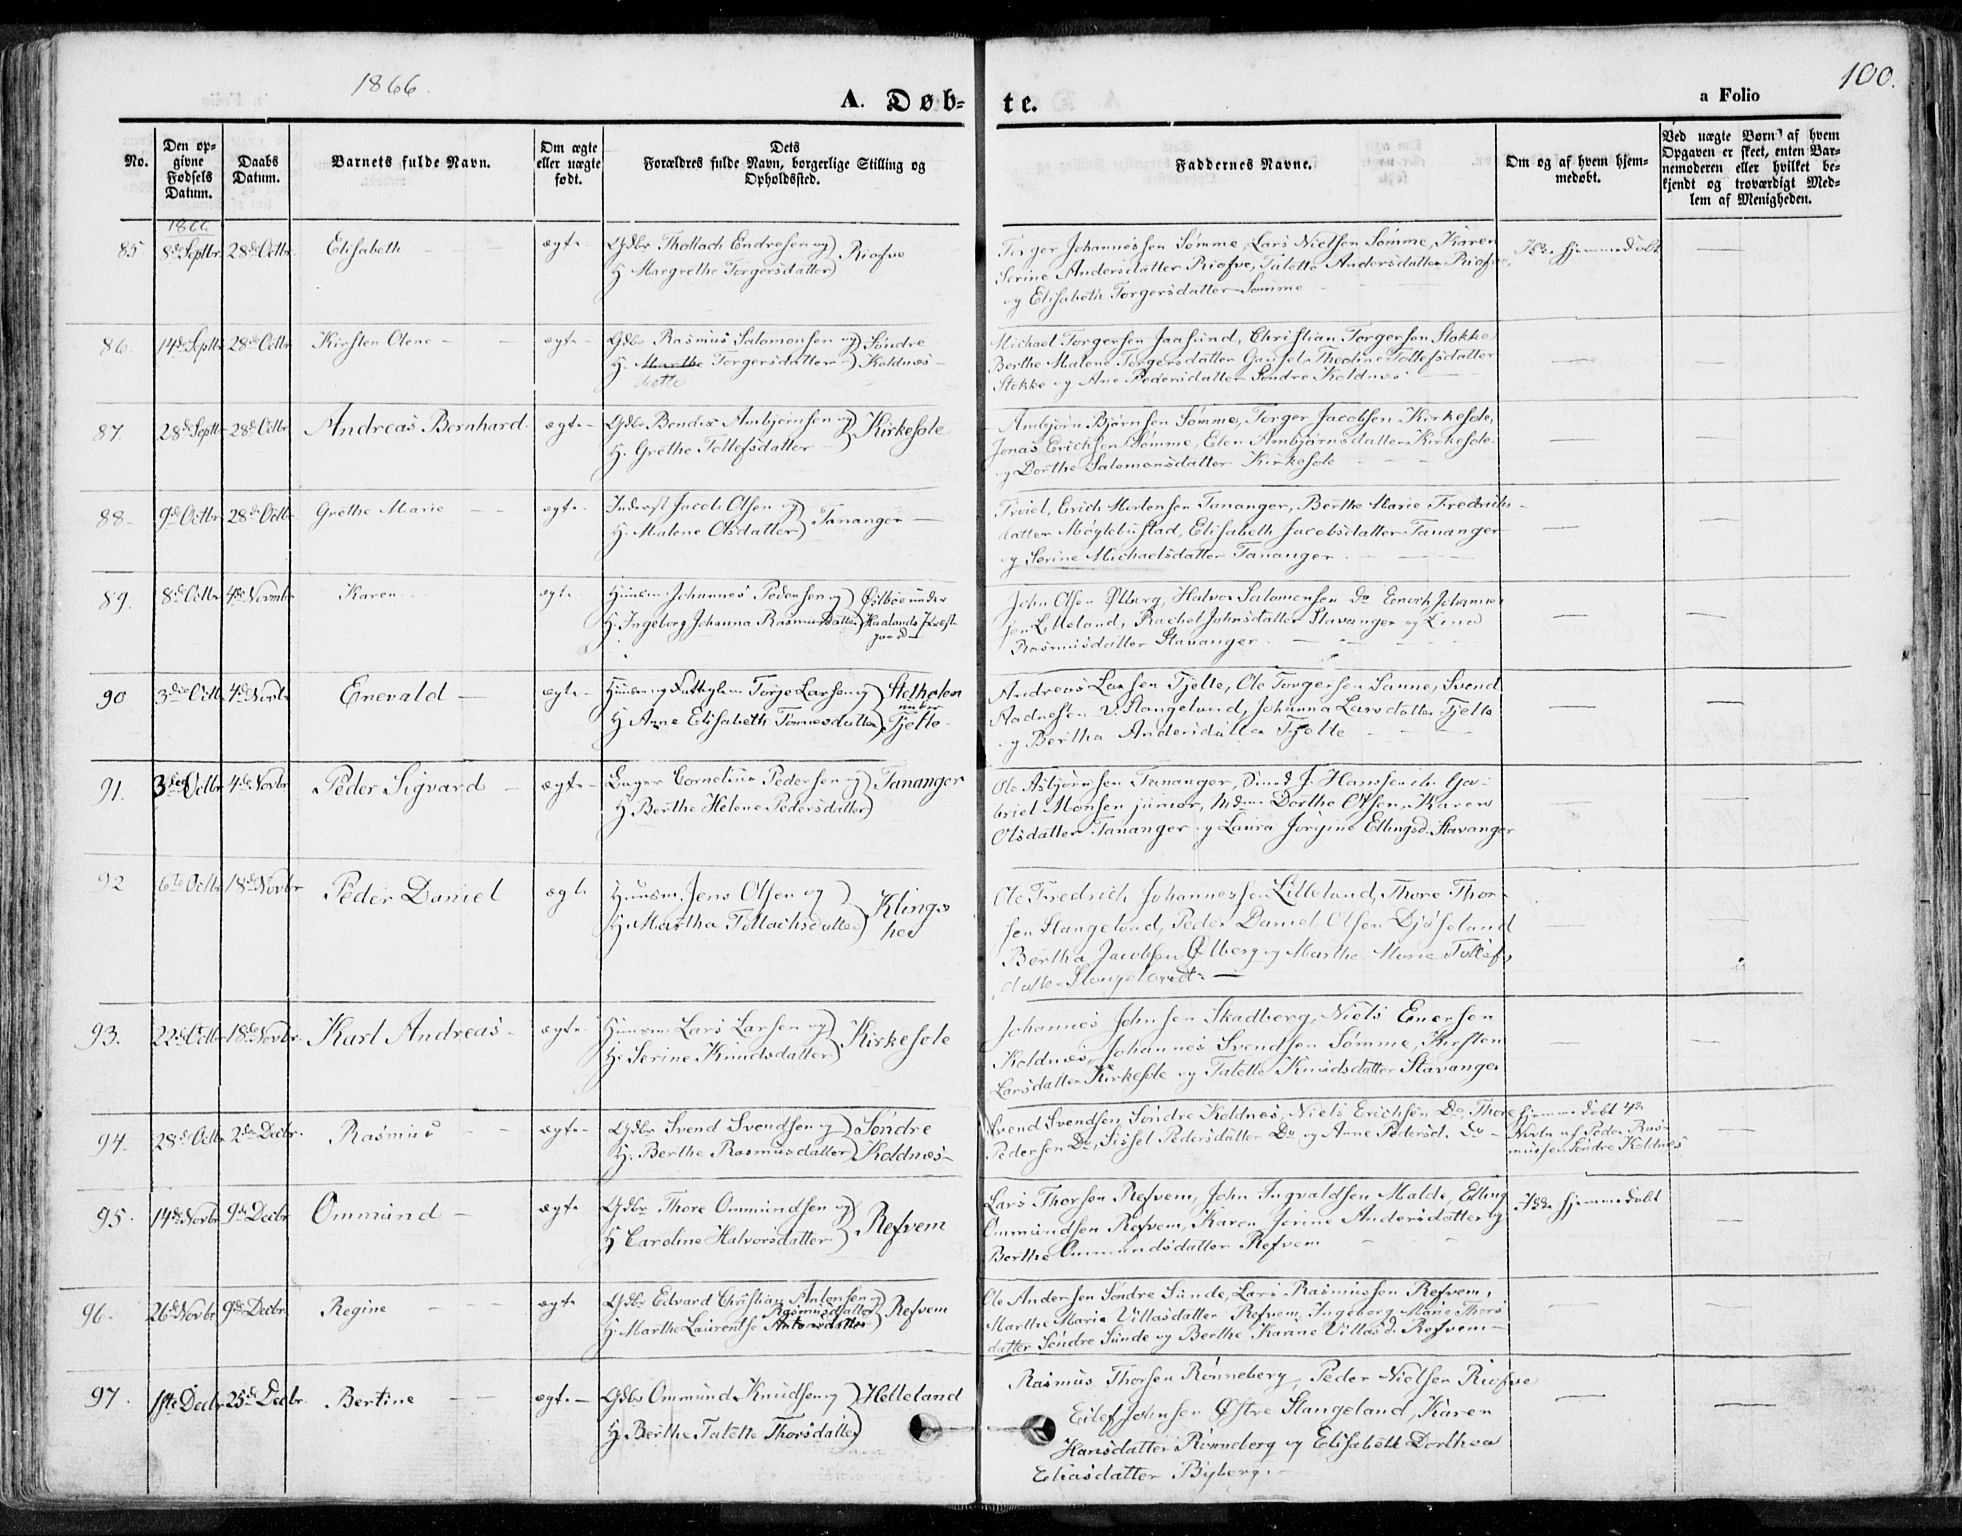 1866.
100.
A. Døb-
te.
a Folio
No.
Den op-
givne
Fødsels
Datum.
Daabs
Datum.
Barnets fulde Navn.
Om ægte
eller uægte
født.
Dets
Forældres fulde Navn, borgerlige Stilling og
Opholdssted.
Faddernes Navne.
Om og af hvem hjem-
medøbt.
Ved uægte Børn af hvem
Opgaven er skeet, enten Bar-
nemoderen eller hvilket be-
kjendt og troværdigt Med-
lem af Menigheden.
1866
85 8de Septbr 28de Octbr Elisabeth ægte
Gdbr Thollach Endresen og
H. Margrethe Torgersdatter
Riofve
Torger Johannessen Sømme, Lars Nielsen Sømme, Karen
Serine Andersdatter Riofve, Talette Andersdatter Riofve,
og Elisabeth Torgersdatter Sømme
hjemmedøbt
86. 14de Septbr 28de Octbr Kirsten Olene ægte
Gdbr Rasmus Salomonsen og
H. Marthe Torgersdatter
Søndre
Koldnæs
Michael Torgersen Jaasund, Christian Torgersen Stokke,
Berthe Malene Torgersdatter Gausel, Theoline Tollefsdatter
Stokke og Ane Pedersdatter Søndre Koldnæs
87. 28de Septbr 28de Octbr Andreas Bernhard ægte
Gdbr Bendix Ambjørnsen og
H. Grethe Tollefsdatter
Kirkesole
Ambjørn Bjørnsen Sømme, Torger Jacobsen Kirkesole,
Jonas Erichsen Sømme, Elen Ambjørnsdatter Kirkesole
og Dorthe Salomonsdatter Kirkesole
88. 9de Octbr 28de Octbr Grethe Marie ægte
Inderst Jacob Olsen og
H. Malene Olsdatter
Tananger
Erich Mortensen Tananger, Berthe Marie Fredrichs-
datter Møglebustad, Elisabeth Jacobsdatter Tananger
og Serine Michaelsdatter Tananger
89. 8de Octbr 4de Novmbr Karen ægte
Huusm. Johannes Pedersen og
H. Ingeborg Johanna Rasmusdatter
Østbøe under
Haalands Præst-
gaard
John Olsen Ølberg, Halvor Salomonsen Do Enoch Johannes-
sen Lilleland, Rachel Johnsdatter Stavanger og Lina
Rasmusdatter Stavanger
90 3die Octbr 4de Novbr Enevald ægte
Torje Larsen og
H. Anne Elisabeth Tønnesdatter
under
Tjelte
Andreas Larsen Tjelte, Ole Torgersen Sanne, Svend
Aadnesen V. Stangeland, Johanna Larsdatter Tjelte
og Bertha Andersdatter Tjelte
91. 3die Octbr 4de Novbr Peder Sigvard ægte
Cornelius Pedersen og
H. Berthe Helene Pedersdatter
Tananger
Ole Asbjørnsen Tananger, J. Hanssen, Ga-
briel Monsen junior, Mdm Dorthe Olsen, Karen
Olsdatter Tananger og Laura Jørgine Ellingsd. Stavanger
92 6te Octbr 18de Novbr Peder Daniel ægte
Huusm. Jens Olsen og
H. Martha Tollachsdatter
Klinge
hei
Ole Fredrich Johannessen Lilleland, Thore Thor-
sen Stangeland, Peder Daniel Olsen Djøseland
Bertha Jacobsen Ølberg og Marthe Marie Tollefs-
datter Stangeland
93. 22de Octbr 18de Novbr. Karl Andreas ægte
Huusm. Lars Larsen og
H. Serine Knudsdatter
Kirkesole
Johannes Johnsen Skadberg, Niels Enersen
Koldnæs, Johannes Svendsen Sømme, Kirsten
Larsdatter Kirkesole og Talette Knudsdatter Stavanger
94. 28de Octbr 2den Decbr. Rasmus ægte
Gdbr Svend Svendsen og
H. Berthe Rasmusdatter
Søndre
Koldnæs
Svend Svendsen Søndre Koldnæs, Niels Erichsen Do, Thore
Pedersen Do, Sissel Pedersdatter Do og Anne Pedersd. Do
hjemmedøbt 4de
Novbr af Peder Ras-
mussen Søndre Koldnæs
95. 14de Novbr 9de Decbr Ommund ægte
Gdbr Thore Ommundsen og
H. Caroline Halvorsdatter
Refvem
Lars Thorsen Refvem, John Ingvaldsen Malde, Elling
Ommundsen Refvem, Karen Jorine Andersdatter og
Berthe Ommundsdatter Refvem
hjemmedøbt
96. 26de Novbr 9de Decbr. Regine ægte
Gdbr Edvard Christian Antonsen og
Rasmusdatter
H. Marthe Laurentse Antonsdatter
Refvem
Ole Andersen Søndre Sunde, Lars Rasmussen Refvem,
Marthe Maria Villasdatter Refvem, Ingeborg Marie Thors-
datter Søndre Sunde og Berthe Karine Villasd. Refvem
97. 1ste Decbr 25de Decbr. Bertine ægte
Gdbr Ommund Knudsen og
H. Berthe Talette Thorsdatter
Helleland
Rasmus Thorsen Rønneberg, Peder Nielsen Riofve
Eilef Johnsen Østre Stangeland, Karen
Hansdatter Rønneberg og Elisabeth Dorthea
Eliasdatter Byberg.